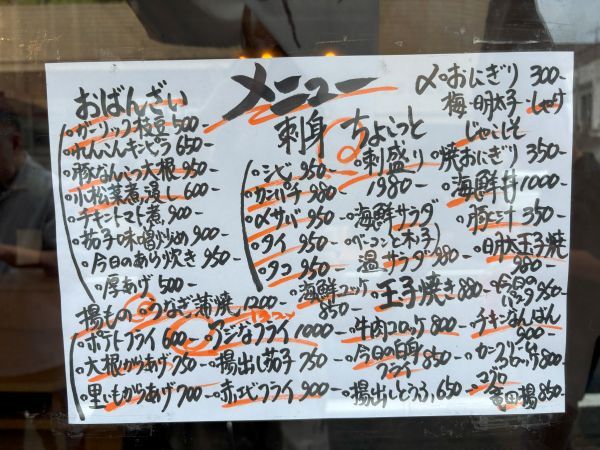 メニュー
おばんざい
ガーリック枝豆 500
れんこんキンピラ 650
豚なんこつ大根 950
小松菜煮浸し 600
チキントマト煮 900
茄子味噌炒め 900
今日のあら炊き 950
厚あげ 500
刺身
シビ 950
カンパチ 980
〆サバ 950
タイ 950
タコ 950
ちょこっと
刺盛り
1980
海鮮サラダ
(ベーコンときのこ)
温サラダ 980
〆 おにぎり 300
梅・明太子・しゃけ
じゃこしそ
焼おにぎり 350
海鮮丼 1000
豚汁 350
明太玉子焼
980
揚もの
うなぎ蒲焼 1200
海鮮ユッケ
850
玉子焼き 880
今日の
パスタ 950
ポテトフライ 600
アジなフライ 1000
牛肉コロッケ 800
チキンなんばん
900
大根からあげ 750
揚出し茄子 750
今日の白身
フライ 850
里いもからあげ 700
赤エビフライ 900
揚出しとうふ 650
マグロ
竜田揚 850